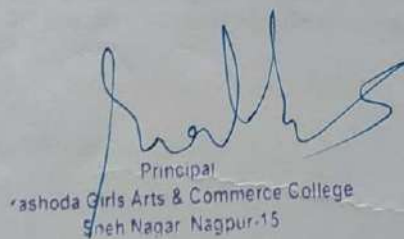 Principal
Yashoda Girls Arts & Commerce College
Sneh Nagar Nagpur-15